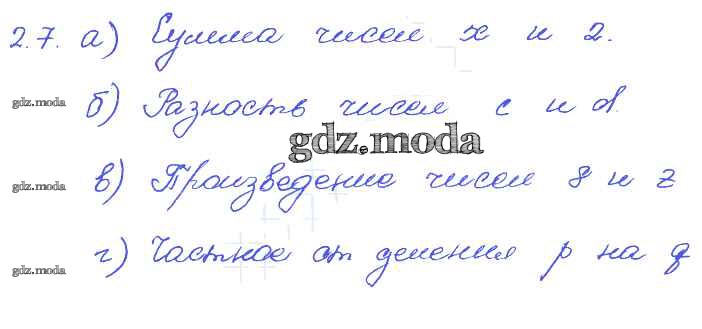 2.7. а) Сумма чисел x и 2.
gdz.moda б) Разность чисел c и d.
gdz.moda
gdz.moda в) Произведение чисел 8 и z
gdz.moda г) Частное от деления p на q